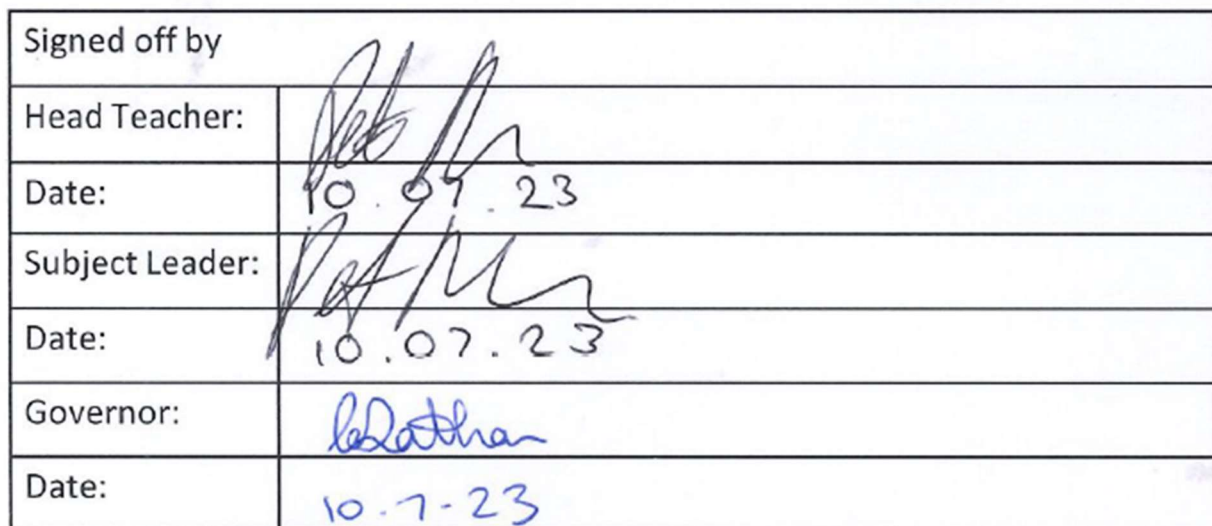 Signed off by
Head Teacher:
Date: 10.07.23
Subject Leader:
Date: 10.07.23
Governor:
Date: 10.7-23